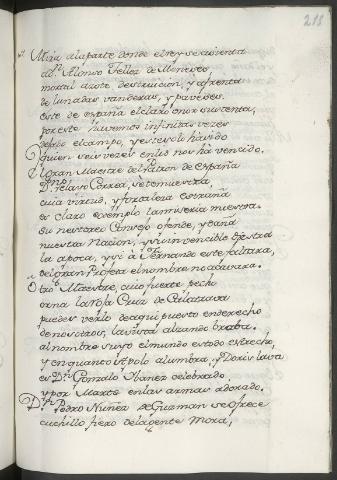 218
Mira a la parte donde el rey se asienta
a Dn. Alonso Tellez de Meneses
mortal azote destruicion, y afrenta
de lunadas vanderas, y paveses.
este de españa el claro onor sustenta,
por este huvemos infinitas vezes
dejado el campo, y este solo ha sido
quien seis vezes en lid nos ha vencido.
El gran Maestre del Patron de España
Dn. Pelayo Correa, se te muestra
cuia virtud, y fortaleza estraña
es claro exemplo la miseria nuestra.
su nuestro Consejo ofende, y daña
nuestra Nacion, y su invencible diestra
la apoca, y si a Fernando este faltara,
del gran Profeta el nombre no cayera.
Otro Maestre, cuio fuerte pecho
orna la roja Cruz de Calatrava
puedes verlo de aqui puesto en derecho
de nosotros, la vista alzando brava.
al nombre suyo el mundo es todo estrecho,
y en quanto Apolo alumbra, y Doris lava
es Dn. Gonzalo Ibañez celebrado,
y por Marte en las armas adorado.
Dn. Pedro Nuñez de Guzman se ofrece
cuchillo fiero de la gente Mora,